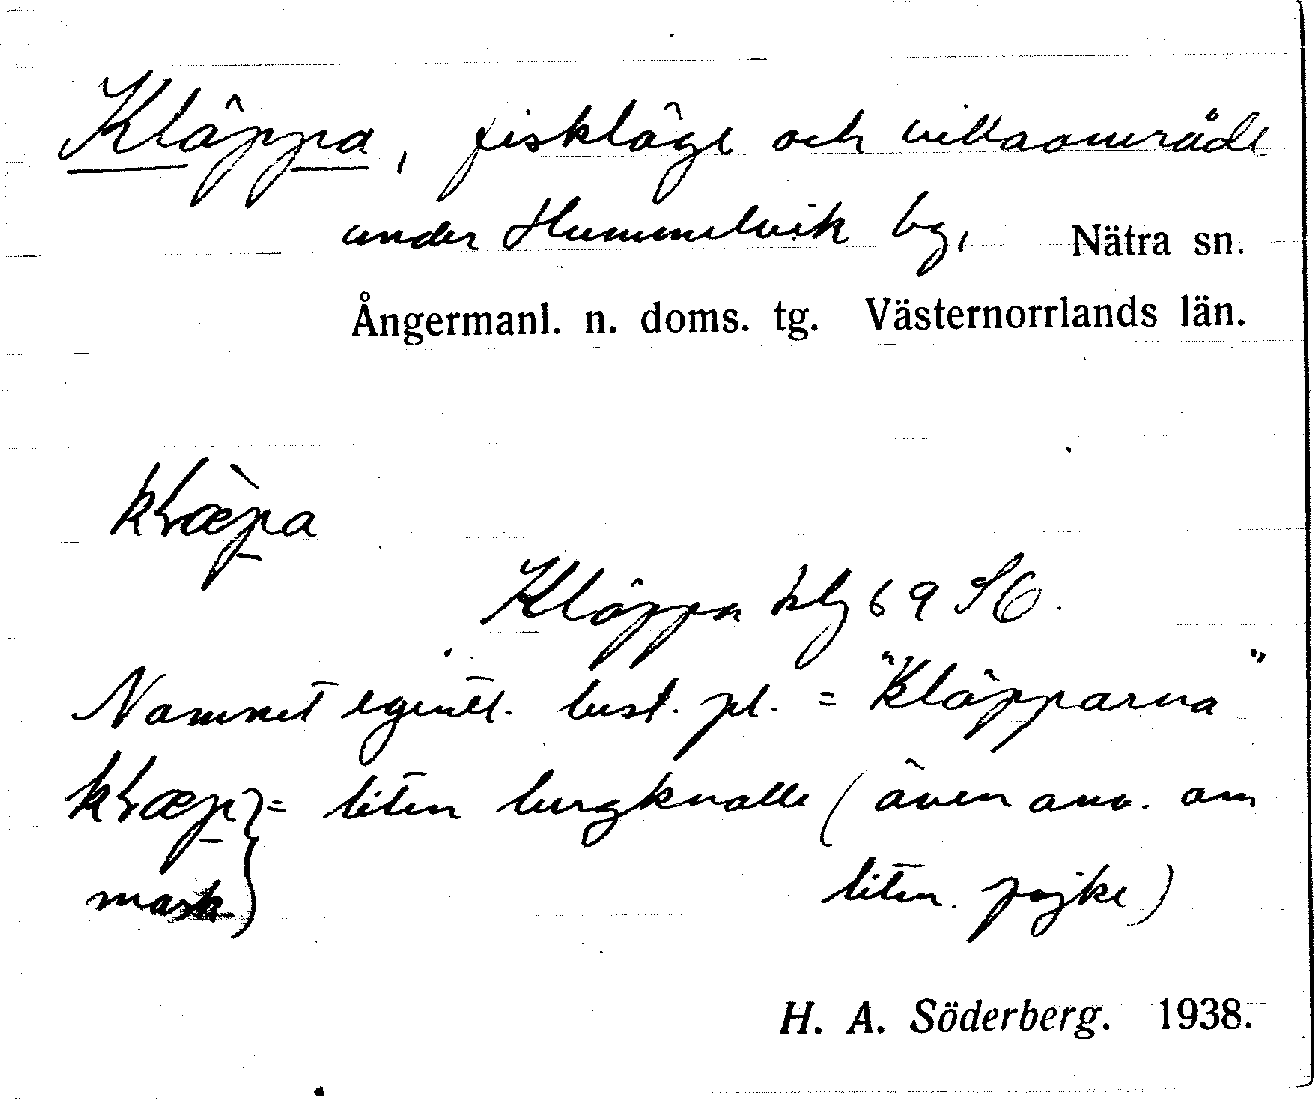 Kläppa, fiskläge och villaområde
under Hummelvik bg,  Nätra sn.
Ångermanl. n. doms. tg.  Västernorrlands län.
Kläppa hlg 69 SO.
Namnet egentl. best. pl. = "Kläpparna"
= liten bergknalle (även anv. om
mask) liten pojke)
H. A. Söderberg. 1938.